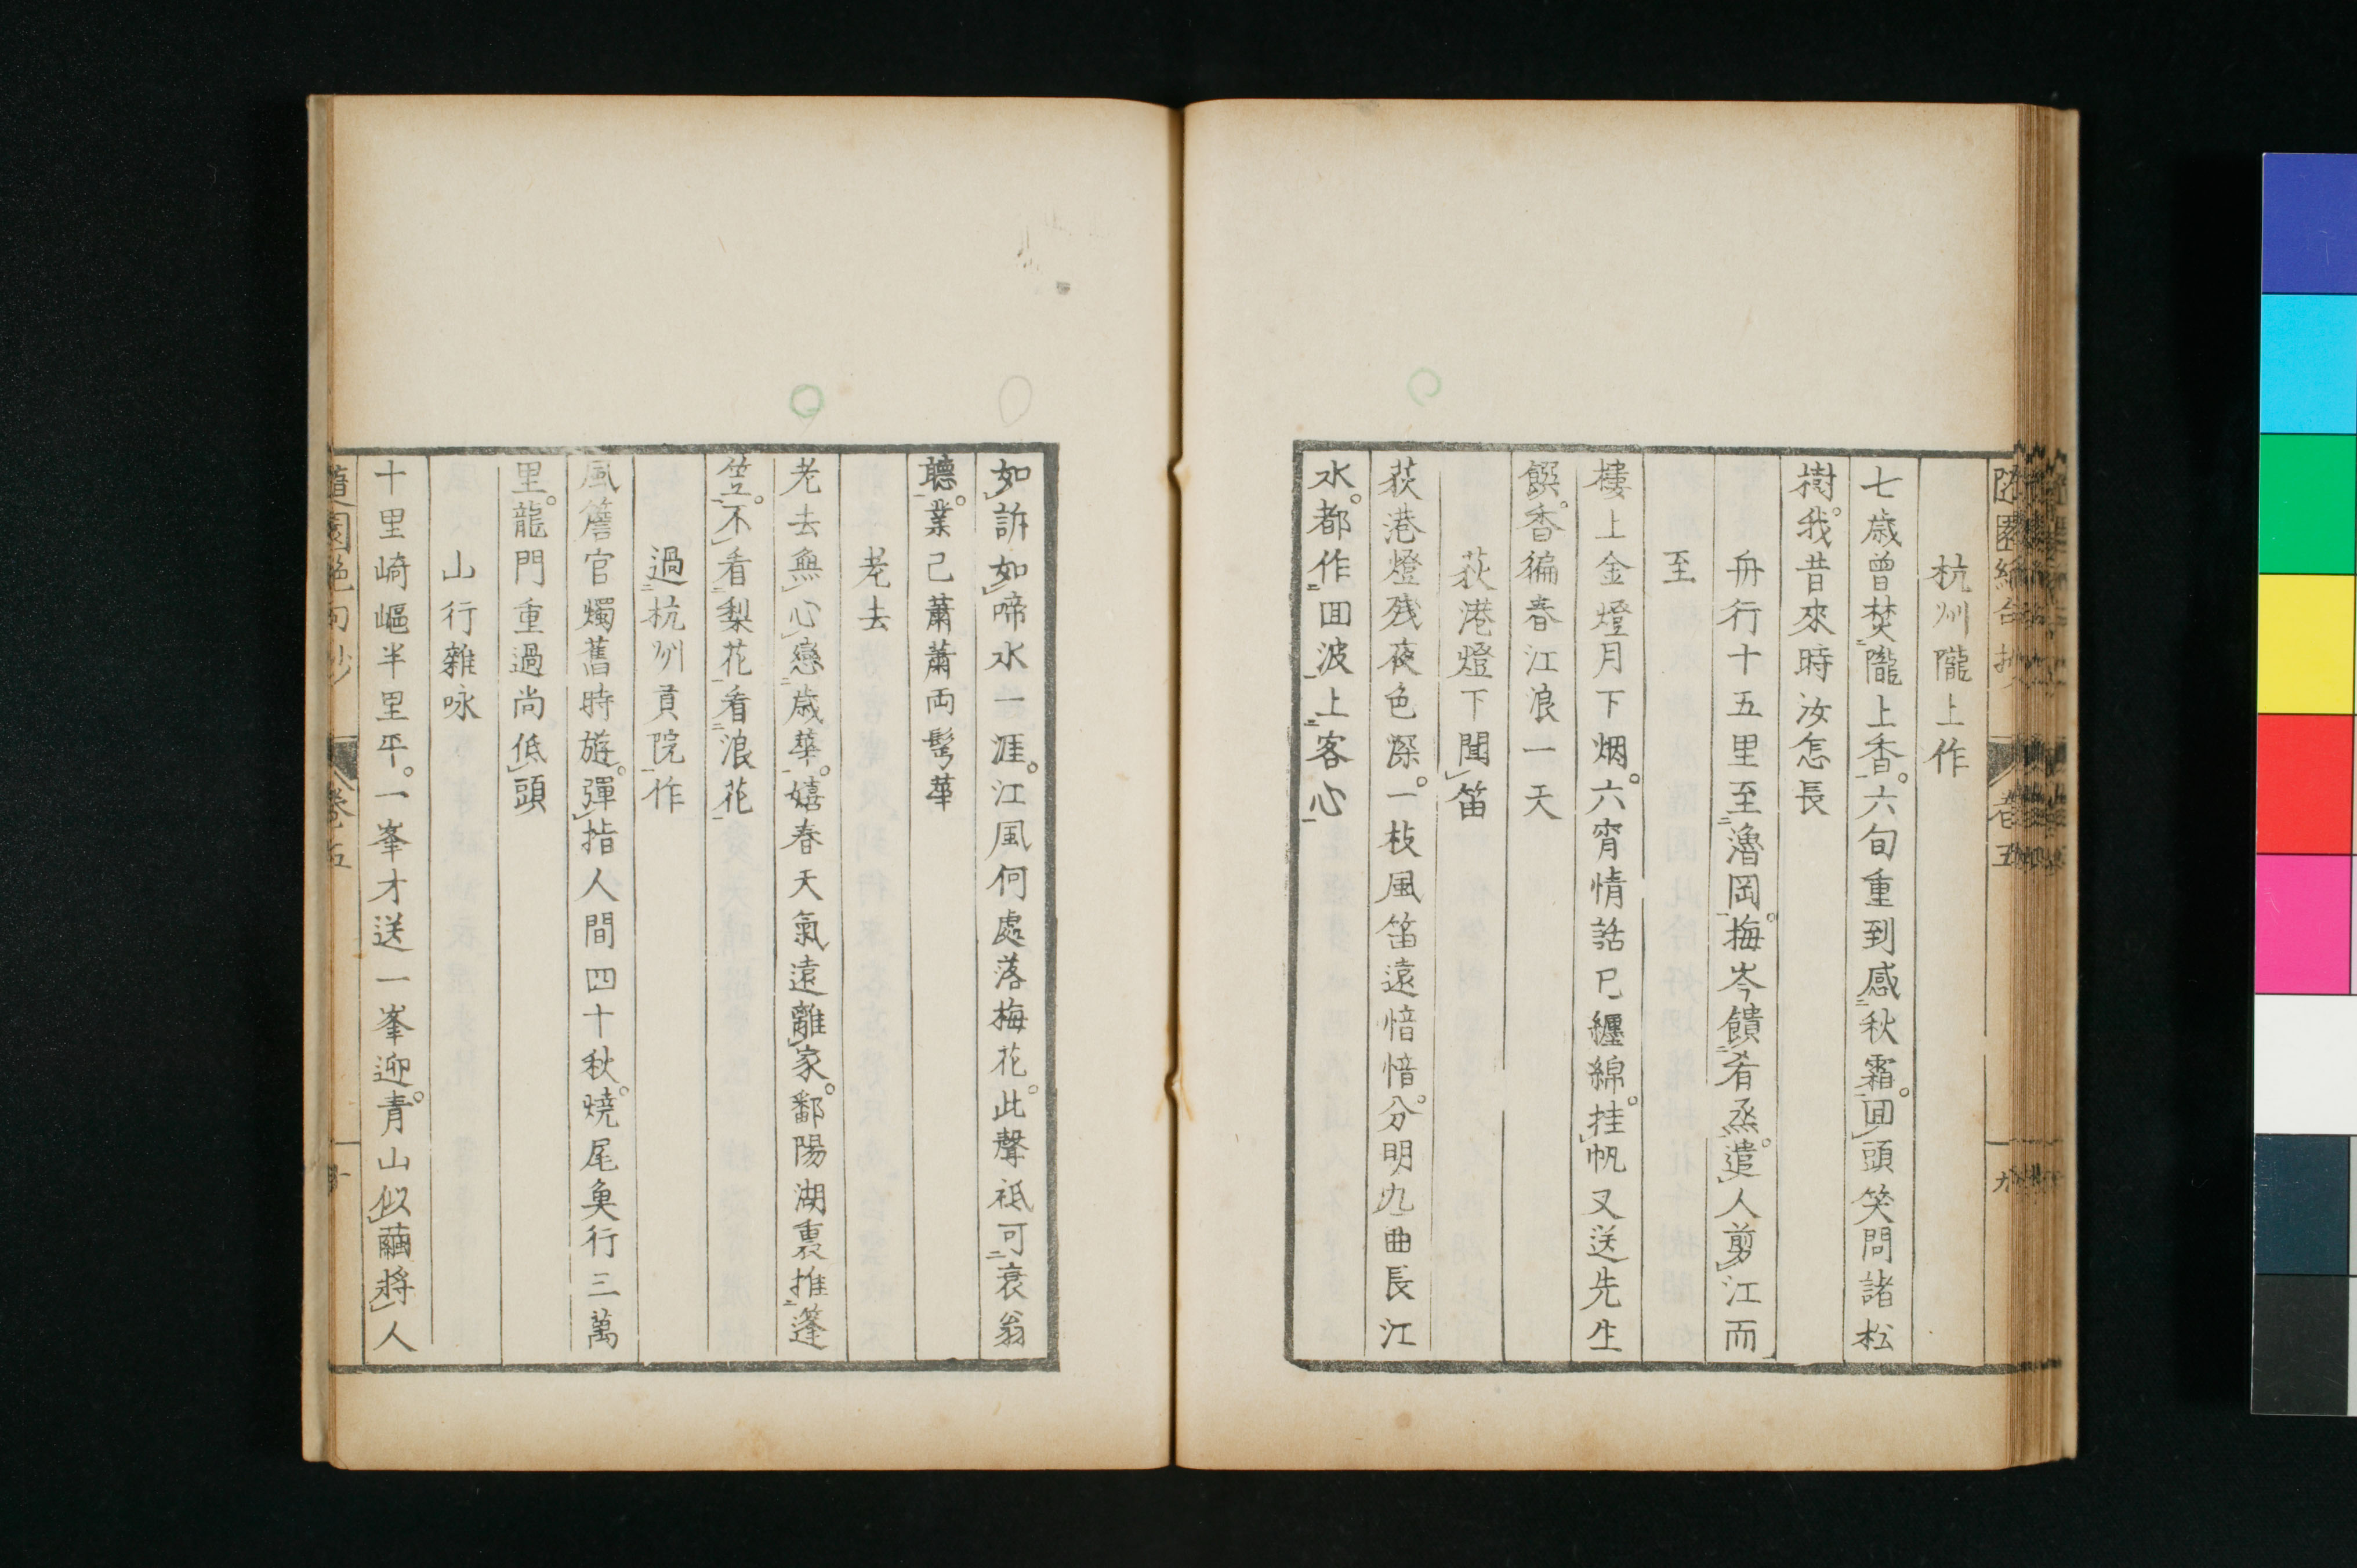 杭州隴上作
七歳曽焚隴上香。六旬重到感秋霜。囬頭笑問諸松
樹。我昔來時汝怎長
舟行十五里至澛岡。梅岑饋肴烝。遣人剪江而
至
樓上金燈月下烟。六宵情話已纏綿。挂帆又送先生
饌。香徧春江浪一天
荻港燈下聞笛
荻港燈残夜色深。一枝風笛遠愔愔。分明九曲長江
水。都作囬波上客心
隨園絶句抄
卷五
九
如訴如啼水一涯。江風何處落梅花。此聲祗可衰翁
聽。業已蕭蕭両鬂華
老去
老去無心戀歳華。嬉春天氣遠離家。鄱陽湖裏推篷
笠。不看梨花看浪花
過杭州貢院作
風簷官燭舊時遊。彈指人間四十秋。燒尾奐行三萬
里。龍門重過尚低頭
山行雜咏
十里崎嶇半里平。一峯才送一峯迎。青山似繭將人
隨園絶句抄
卷五